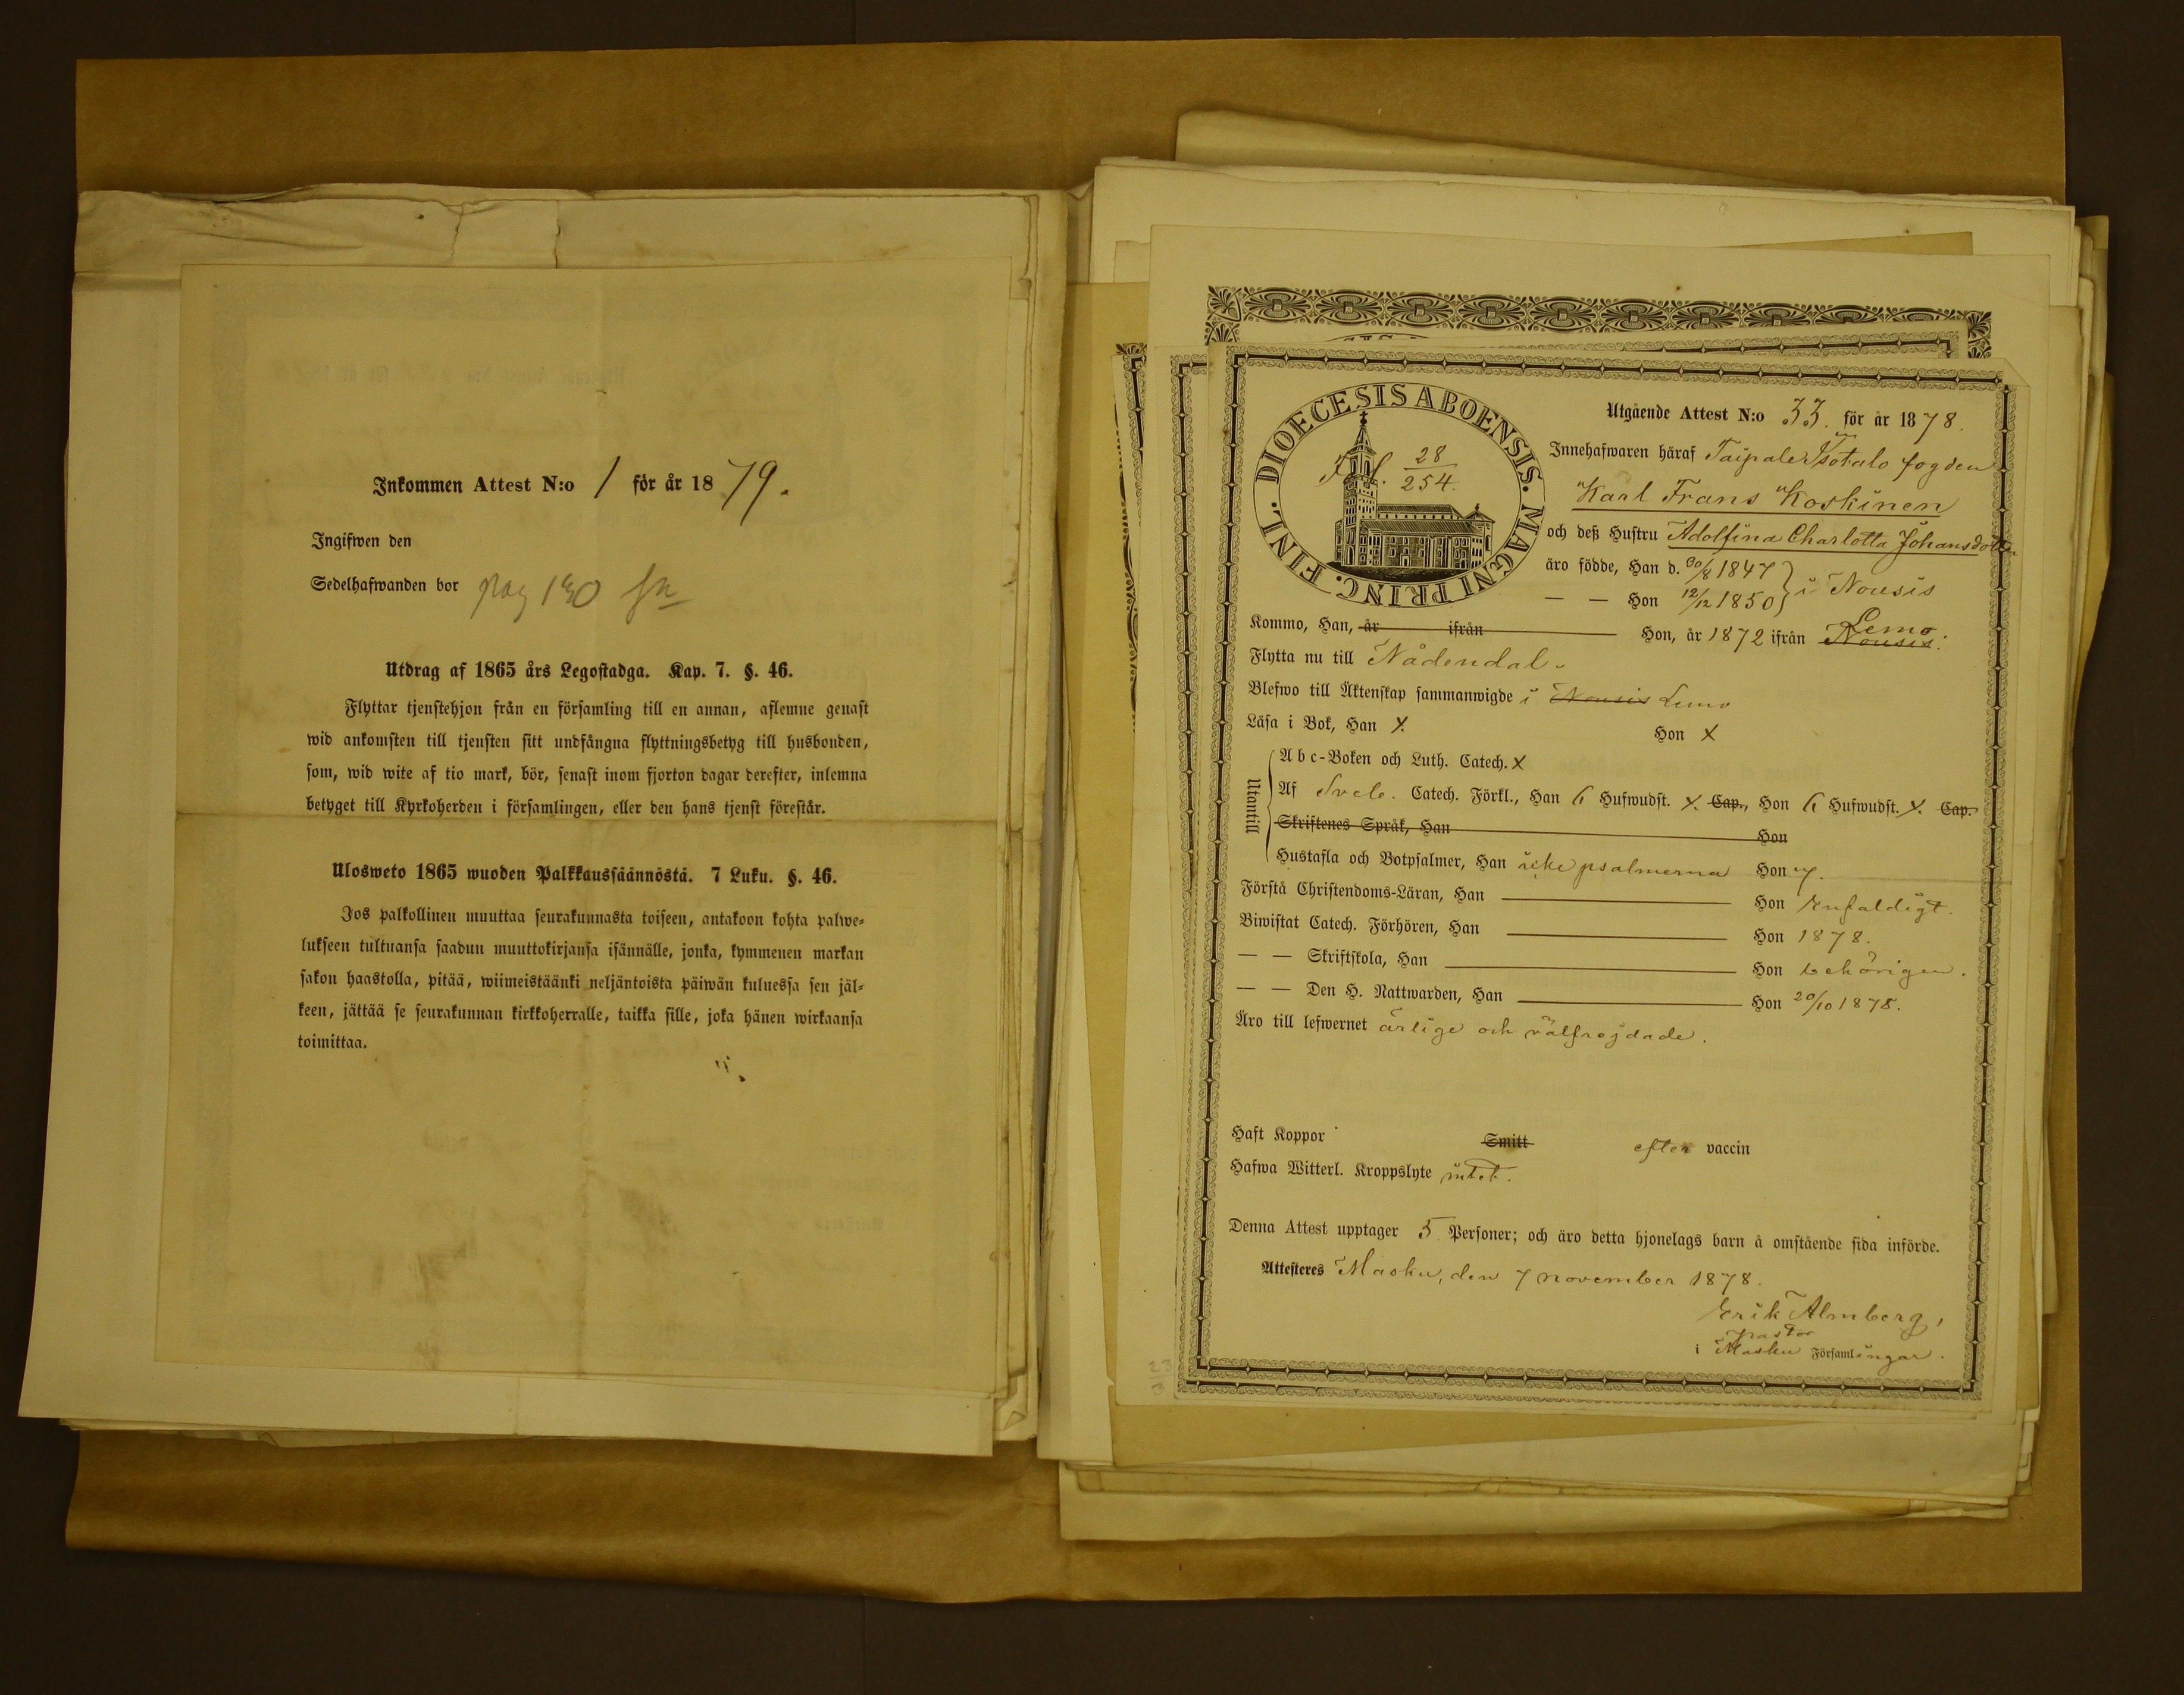 Inkommen Attest N:o 1 för år 1879.
Ingifwen den
Sedelhafwanden bor pag 130
Utdrag af 1865 års Legostadga. Kap. 7. §. 46.
Flyttar tjenstehjon från en församling till en annan, aflemne genast
wid ankomsten till tjensten sitt undfångna flyttningsbetyg till husbonden,
som, wid wite af tio mark, bör, senast inom fjorton dagar derefter, inlemna
betyget till Kyrkoherden i församlingen, eller den hans tjenst förestår.
Ulosweto 1865 wuoden Palkkaussäännöstä. 7 Luku. §. 46.
Jos palkollinen muuttaa seurakunnasta toiseen, antakoon kohta palwe-
lukseen tultuansa saadun muuttokirjansa isännälle, jonka, kymmenen markan
sakon haastolla, pitää, wiimeistäänki neljäntoista päiwän kuluessa sen jäl-
keen, jättää se seurakunnan kirkkoherralle, taikka sille, joka hänen wirkaansa
toimittaa.
DIOECESIS ABOENSIS. MAGNI PRINC. FINL.
Fol. 28/254.
Utgående Attest N:o 33. för år 1878.
Innehafwaren häraf Taipale Isotalo fogden
Karl Frans Koskinen
och deß Hustru Adolfina Charlotta Johansdotter
äro födde, Han d. 30/8 1847 } i Nousis
— — Hon 12/12 1850
Kommo, Han, år ifrån Hon, år 1872 ifrån Nousis. Lemo
Flytta nu till Nådendal.
Blefwo till Äktenskap sammanwigde i Nousis Lemo
Läsa i Bok, Han x. Hon x
Utantill
Abc-Boken och Luth. Catech. x
Af Sveb. Catech. Förkl., Han 6 Hufwudst. x. Cap., Hon 6 Hufwudst. x. Cap.
Skriftenes Språk, Han Hon
Hustafla och Botpsalmer, Han icke psalmerna Hon
Förstå Christendoms-Läran, Han — Hon Enfaldigt.
Biwistat Catech. Förhören, Han — Hon 1878.
— — Skriftskola, Han — Hon behörigen.
— — Den H. Nattwarden, Han — Hon 20/10 1878.
Äro till lefwernet ärlige och välfrejdade.
Haft Koppor Smitt efter vaccin
Hafwa Witterl. Kroppslyte intet.
Denna Attest upptager 5 Personer; och äro detta hjonelags barn å omstående sida införde.
Attesteres Masku, den 7 november 1878.
Erik Almberg,
Pastor
i Masku Församlingar.
23